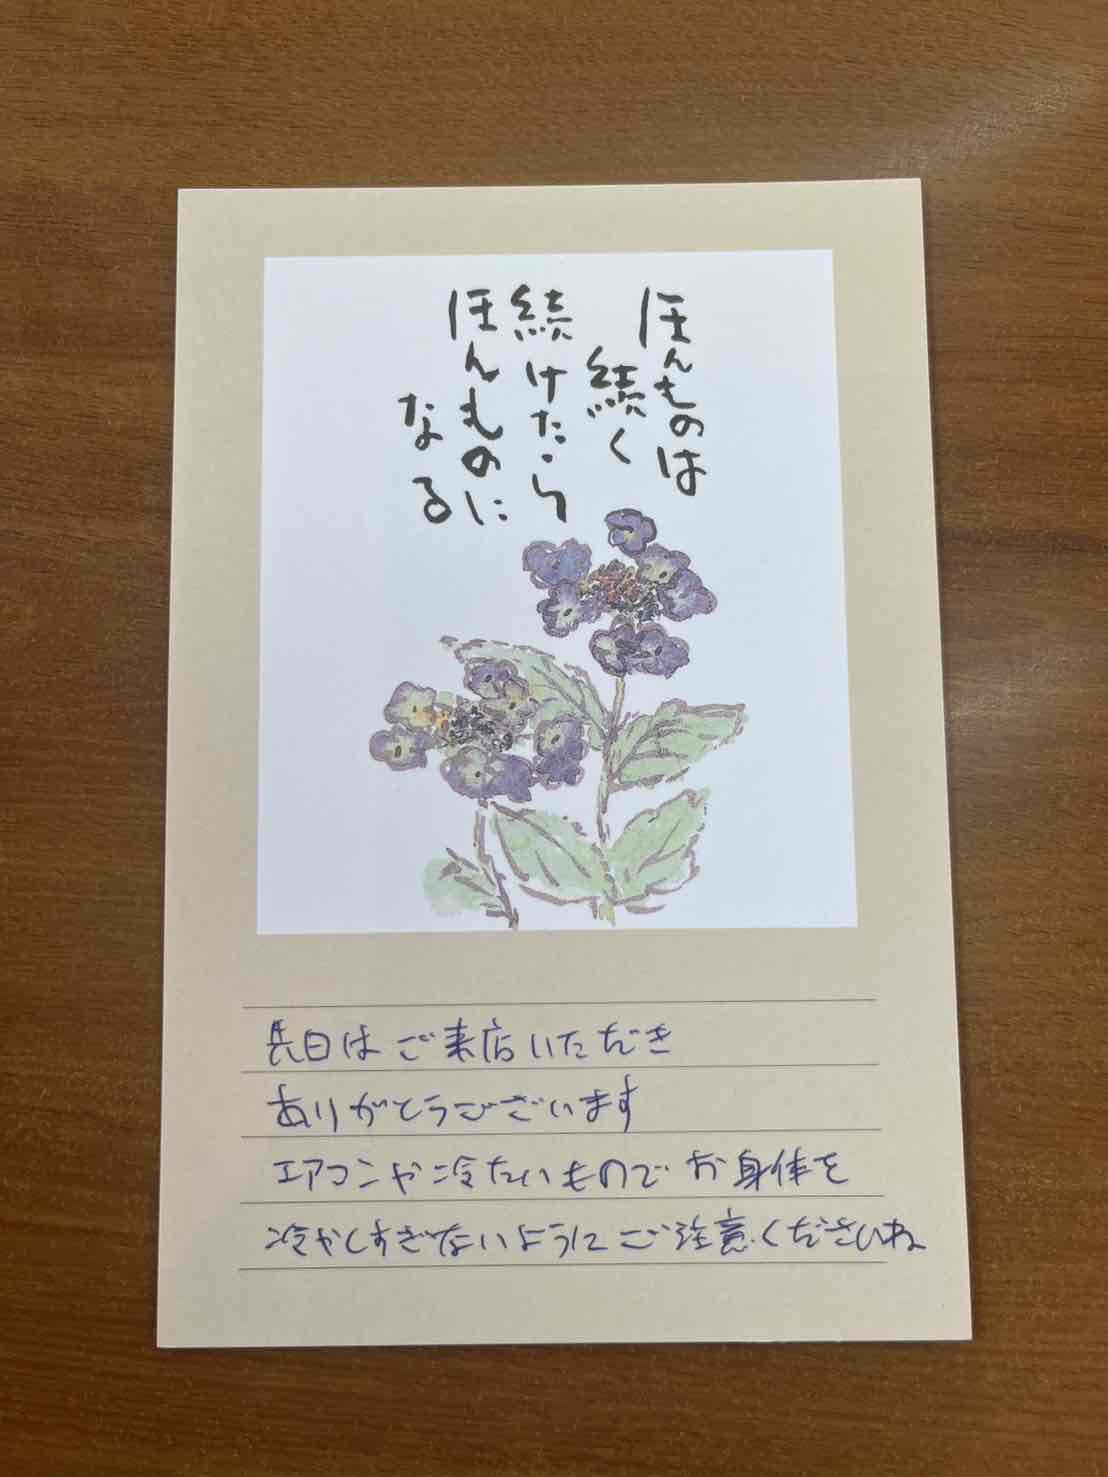 ほんものは
続く
続けたら
ほんものに
なる
先日はご来店いただき
ありがとうございます
エアコンや冷たいものでお身体を
冷やしすぎないようにご注意くださいね